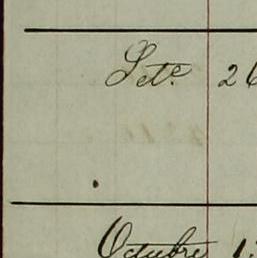 Sete 26
Octubre 1